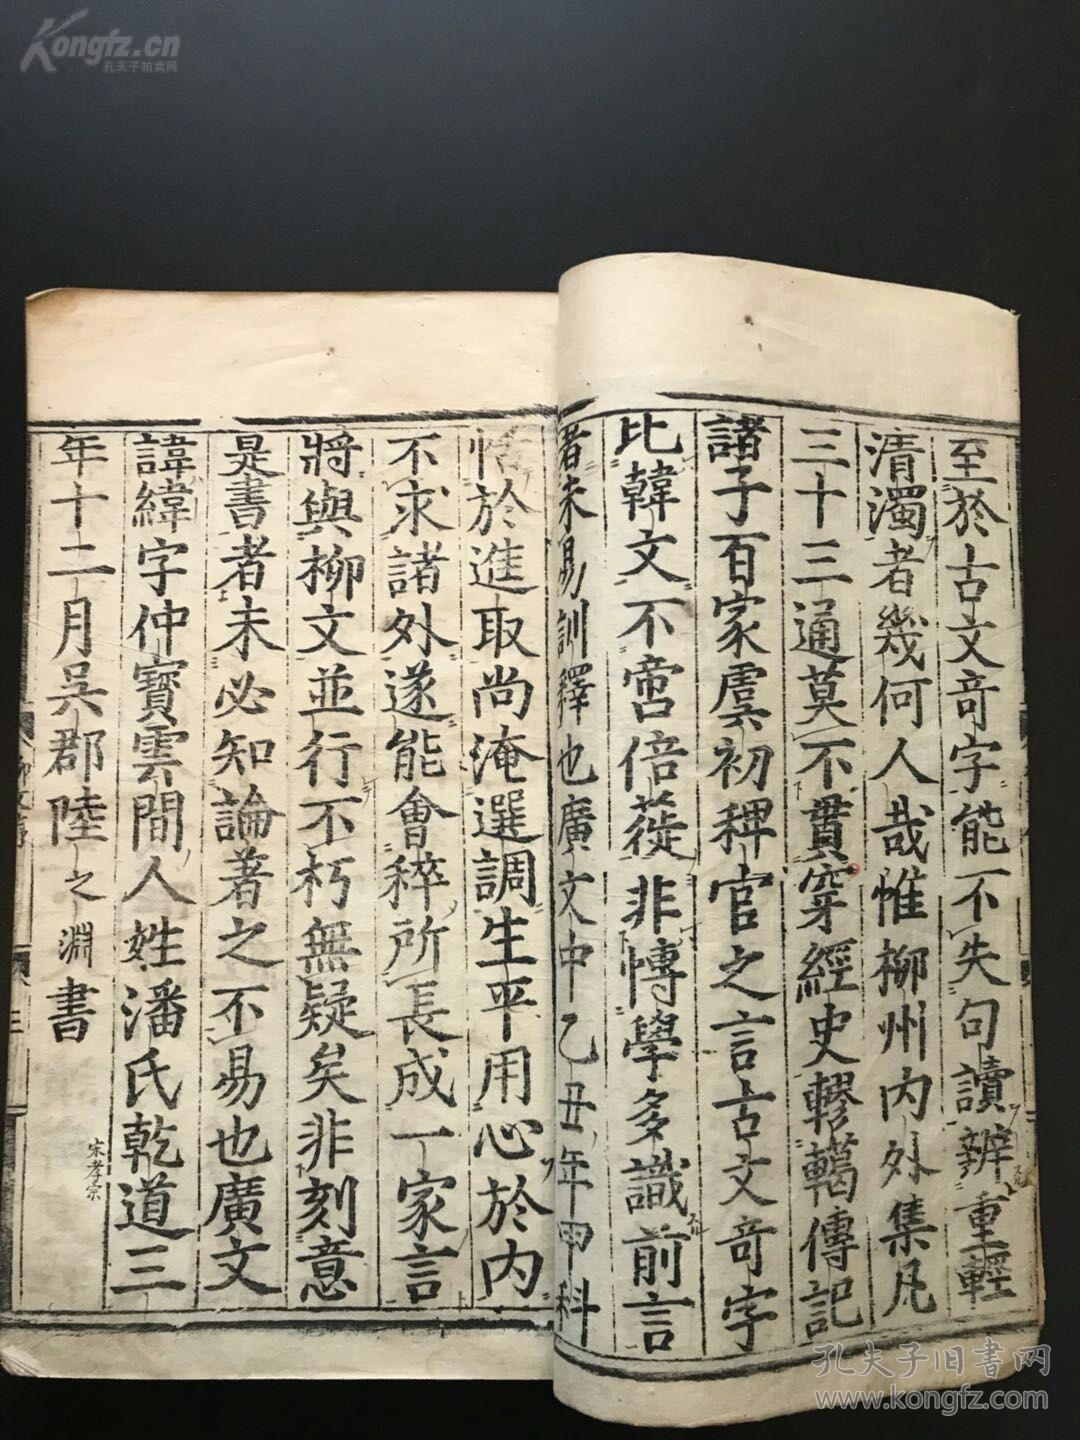 Kongfz.cn
孔夫子拍卖网
至於古文奇字能不失句讀辨重輕
清濁者幾何人哉惟柳州内外集凡
三十三通莫不貫穿經史轇轕傳記
諸子百家虞初稗官之言古文奇字
比韓文不啻倍蓰非博學多識前言
者未易訓釋也廣文中乙丑年甲科
恬於進取尚淹選調生平用心於内
不求諸外遂能會稡所長成一家言
將與柳文並行不朽無疑矣非刻意
是書者未必知論著之不易也廣文
諱緯字仲寶雲間人姓潘氏乾道三
宋孝宗
年十二月吳郡陸之淵書
孔夫子旧書网
www.kongfz.com